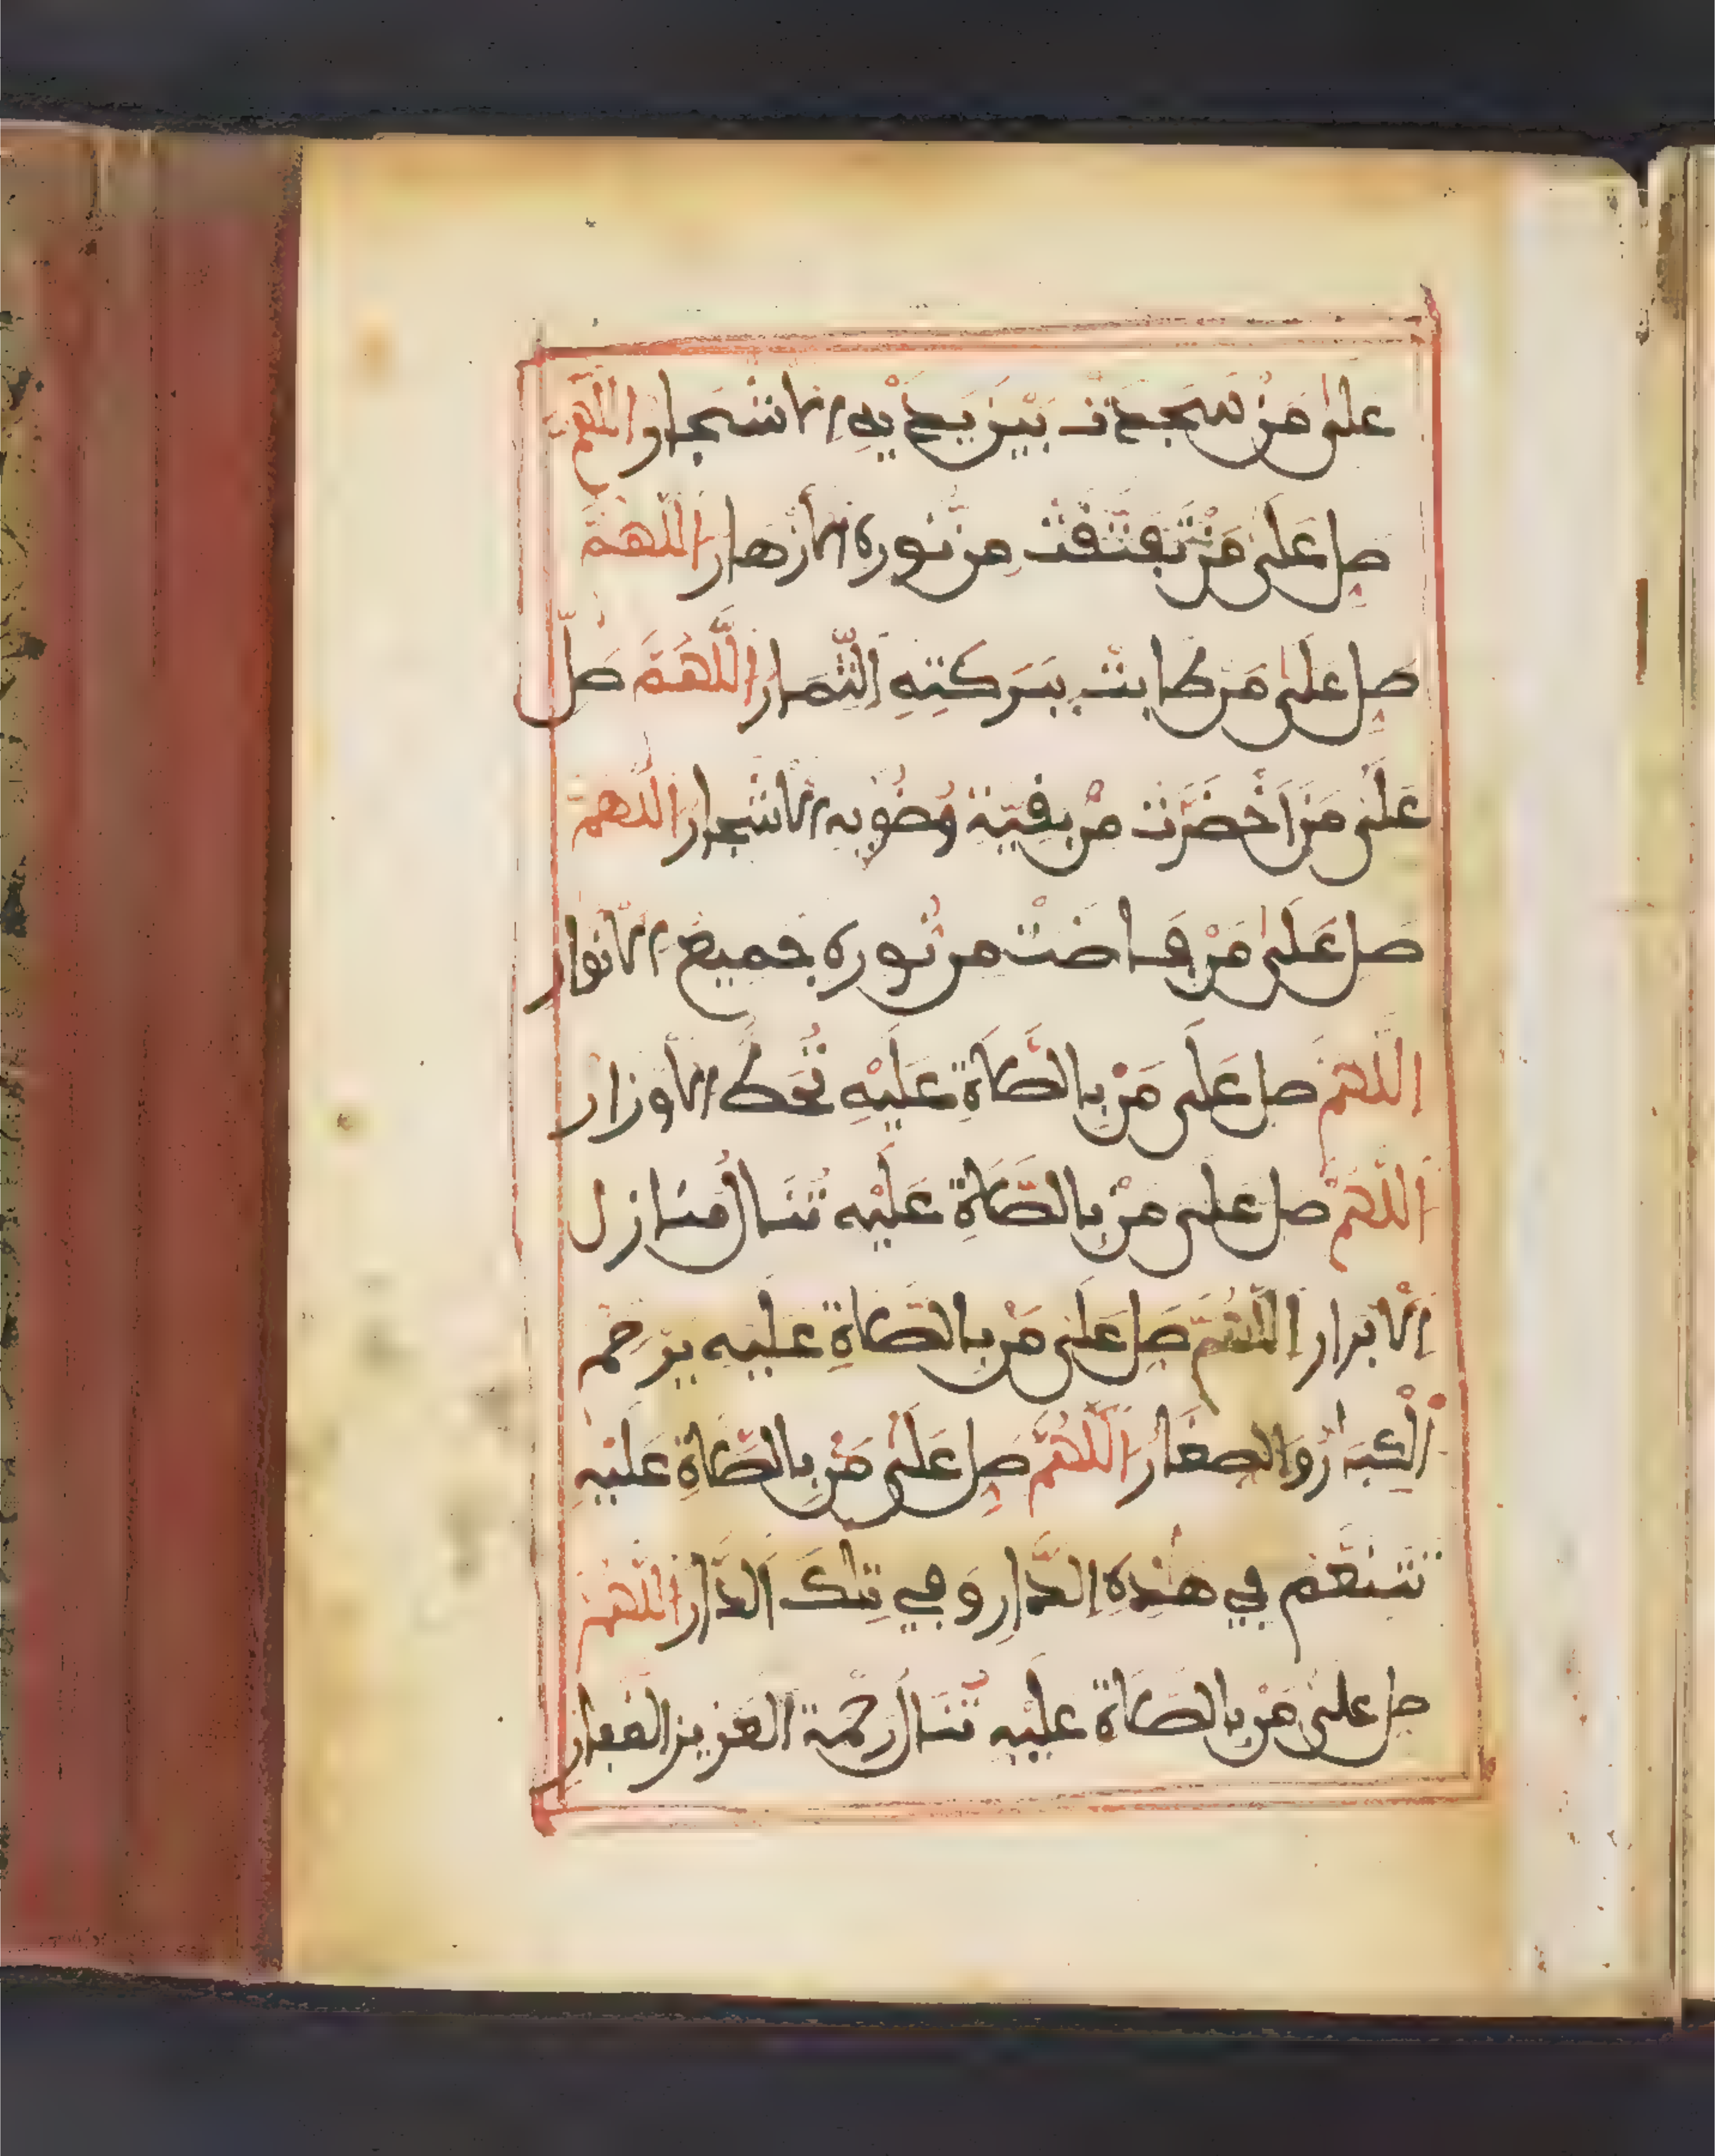 على من سجدت بين يديه الاشجار اللهم
صل على من تفتقت من نوره الأزهار اللهم
صل على من طابت ببركته الثمار اللهم صل
على من اخضرت من بقية وضوئه الاشجار اللهم
صل على من فاضت من نوره جميع الانوار
اللهم صل على من بالصلاة عليه تحط الأوزار
اللهم صل على من بالصلاة عليه تنال منازل
الابرار اللهم صل على من بالصلاة عليه يرحم
الكبار والصغار اللهم صل على من بالصلاة عليه
نتنعم في هذه الدار وفي تلك الدار اللهم
صل على من بالصلاة عليه تنال رحمة العزيز الغفار